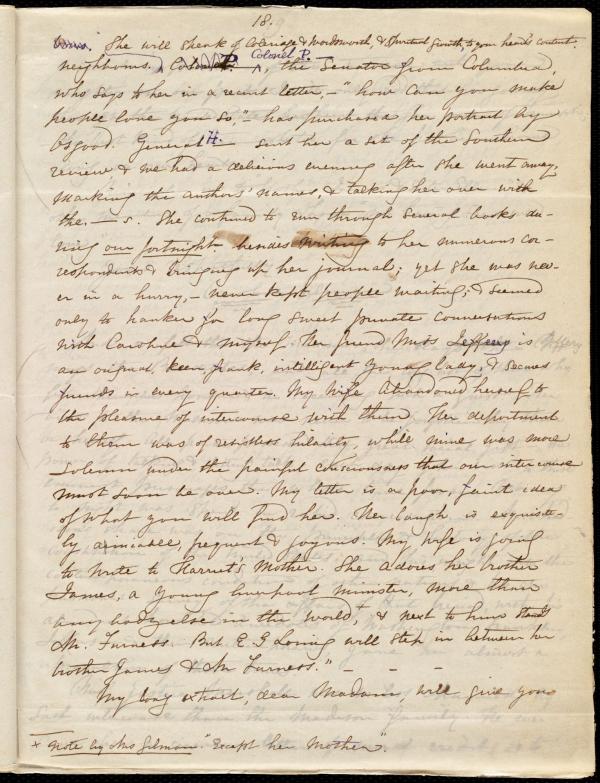 18.
She will speak of Coleridge & Wordsworth, & spiritual growth, to your heart's content.
neighbours. Colonel P. Colonel P., the Senator from Columbia,
who says to her in a recent letter, – "how can you make
people love you so," – has purchased her portrait by
Osgood. General H. sent her a set of the Southern
review & we had a delicious evening after she went away,
marking the authors' names, & talking her over with
the. — s. She contrived to run through several books du-
ring our fortnight besides writing to her numerous cor-
respondents & bringing up her journal; yet she was nev-
er in a hurry, – never kept people waiting; & seemed
only to hanker for long sweet private conversations
with Caroline & myself. Her friend Miss Jeffery is
an original, keen, frank, intelligent young lady, & secures
friends in every quarter. My wife abandoned herself to
the pleasure of intercourse with them. Her deportment
to them was of resistless hilarity, while mine was more
solemn under the painful consciousness that our intercourse
must soon be over. My letter is a poor, faint idea
of what you will find her. Her laugh is exquisite-
ly amiable, frequent & joyous. My wife is going
to write to Harriet's Mother. She adores her brother
James, a young Liverpool minister, more than
any body else in the world, + & next to him stands
Mr. Furness. But E G Loring will step in between her
brother James & Mr Furness." – – –
My long extract, dear Madam, will give you
+ Note by Mrs Gilman "except her mother".